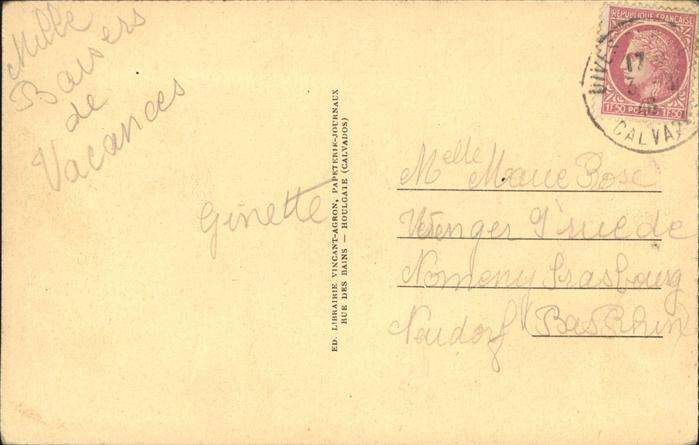 Mille
Baisers
de
Vacances
Ginette
ED. LIBRAIRIE VINCANT-AGRON, PAPETERIE-JOURNAUX
RUE DES BAINS — HOULGATE (CALVADOS)
REPUBLIQUE FRANÇAISE
1F50 POSTES 1F50
DIVES
17
3
CALVA
Melle Marie Rose
9 rue de
Nomeny Strasbourg
Neudorf Bas Rhin